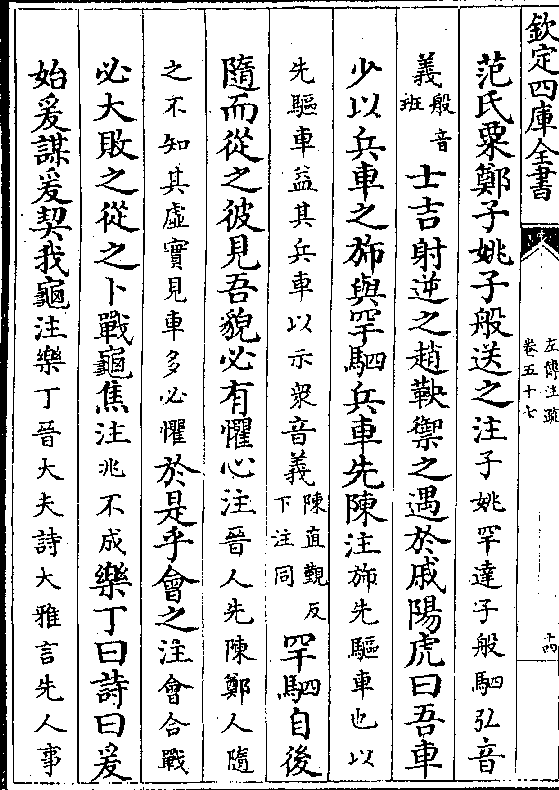 欽定四庫全書
左傳注疏
卷五十七
十四
范氏粟鄭子姚子般送之注子姚罕達子般駟弘音
義般音班士吉射逆之趙鞅禦之遇於戚陽虎曰吾車
少以兵車之斾與罕駟兵車先陳注斾先驅車也以
先驅車益其兵車以示衆音義陳直覲反下注同罕駟自後
隨而從之彼見吾貌必有懼心注晉人先陳鄭人隨
之不知其虛實見車多必懼於是乎會之注會合戰
必大敗之從之卜戰龜焦注兆不成樂丁曰詩曰爰
始爰謀爰契我龜注樂丁晉大夫詩大雅言先人事